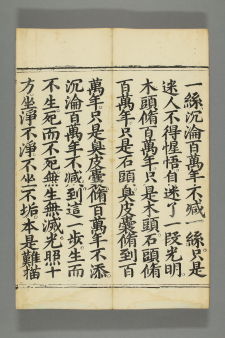 一絲沉淪百萬年不减一絲只是
迷人不得惺悟自迷了一段光明
木頭脩百萬年只是木頭石頭脩
百萬年只是石頭臭皮囊脩到百
萬年只是臭皮囊脩百萬年不添
沉淪百萬年不减到這一步生而
不生死而不死無生無滅光照十
方坐淨不淨不坐不垢本是難描